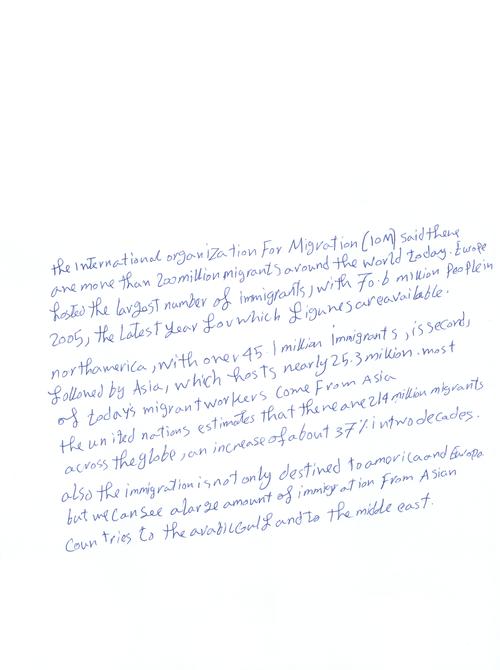 the International organization For Migration (IOM) said there
are more than 200 million migrants around the world today. Europe
hosted the largest number of immigrants, with 70.6 million People in
2005, the Latest year for which figures are available.
north america, with over 45.1 million immigrants, is second,
followed by Asia, which hosts nearly 25.3 million. most
of today's migrant workers come From Asia
the united nations estimates that there are 214 million migrants
across the globe, an increase of about 37% in two decades.
also the immigration is not only destined to america and Europe
but we can see a large amount of immigration From Asian
Countries to the arabic Gulf and to the middle east.